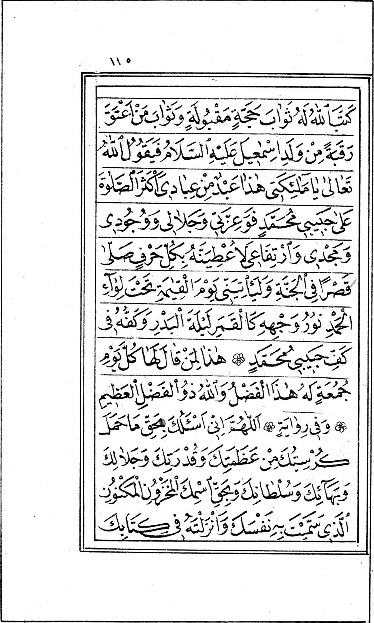 ١١٥
كَتَبَ اللهُ لَهُ ثَوَابَ حَجَّةٍ مَقْبُولَةٍ وَثَوَابَ مَنْ اَعْتَقَ
رَقَبَةً مِنْ وَلَدِ اِسْمٰعِيلَ عَلَيْهِ السَّلَامُ فَيَقُولُ اللهُ
تَعَالٰى يَا مَلٰئِكَتِى هٰذَا عَبْدٌ مِنْ عِبَادِى اَكْثَرَ الصَّلٰوةَ
عَلٰى حَبِيبِى مُحَمَّدٍ فَوَعِزَّتِى وَجَلَالِى وَوُجُودِى
وَمَجْدِى وَارْتِفَاعِى لَاُعْطِيَنَّهُ بِكُلِّ حَرْفٍ صَلّٰى
قَصْرًا فِى الْجَنَّةِ وَلَيَأْتِيَنِّى يَوْمَ الْقِيٰمَةِ تَحْتَ لِوَآءِ
الْحَمْدِ نُورُ وَجْهِهِ كَالْقَمَرِ لَيْلَةَ الْبَدْرِ وَكَفُّهُ فِى
كَفِّ حَبِيبِى مُحَمَّدٍ ۞ هٰذَا لِمَنْ قَالَهَا كُلَّ يَوْمِ
جُمُعَةٍ لَهُ هٰذَا الْفَضْلُ وَاللهُ ذُو الْفَضْلِ الْعَظِيمِ
۞ وَفِى رِوَايَةٍ ۞ اَللّٰهُمَّ اِنِّى اَسْئَلُكَ بِحَقِّ مَا حَمَلَ
كُرْسِيُّكَ مِنْ عَظَمَتِكَ وَقُدْرَتِكَ وَجَلَالِكَ
وَبَهَآئِكَ وَسُلْطَانِكَ وَبِحَقِّ اسْمِكَ الْمَخْزُونِ الْمَكْنُونِ
الَّذِى سَمَّيْتَ بِهِ نَفْسَكَ وَاَنْزَلْتَهُ فِى كِتَابِكَ